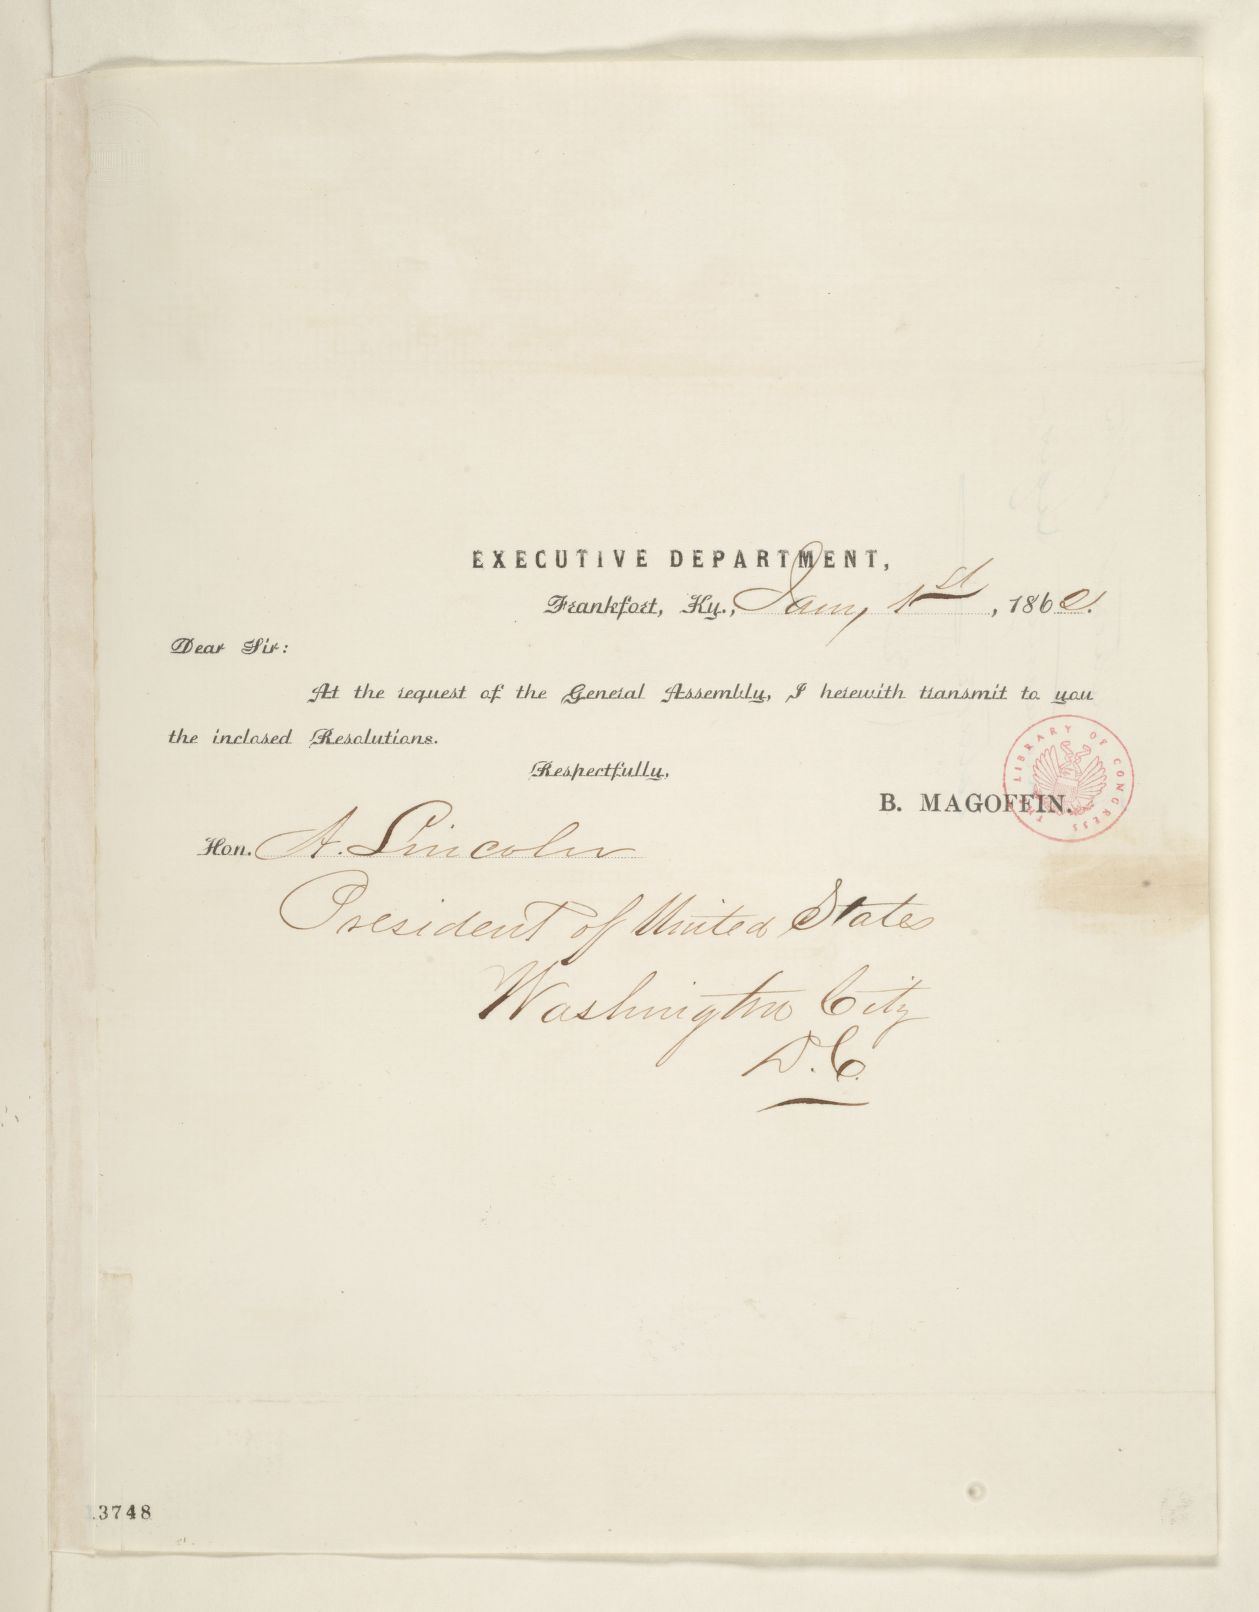 EXECUTIVE DEPARTMENT,
Frankfort, Ky., Jany 1st, 1862.
Dear Sir:
At the request of the General Assembly, I herewith transmit to you
the inclosed Resolutions.
Respectfully,
B. MAGOFFIN.
THE LIBRARY OF CONGRESS
Hon. A. Lincoln
President of United States
Washington City
D.C.
13748